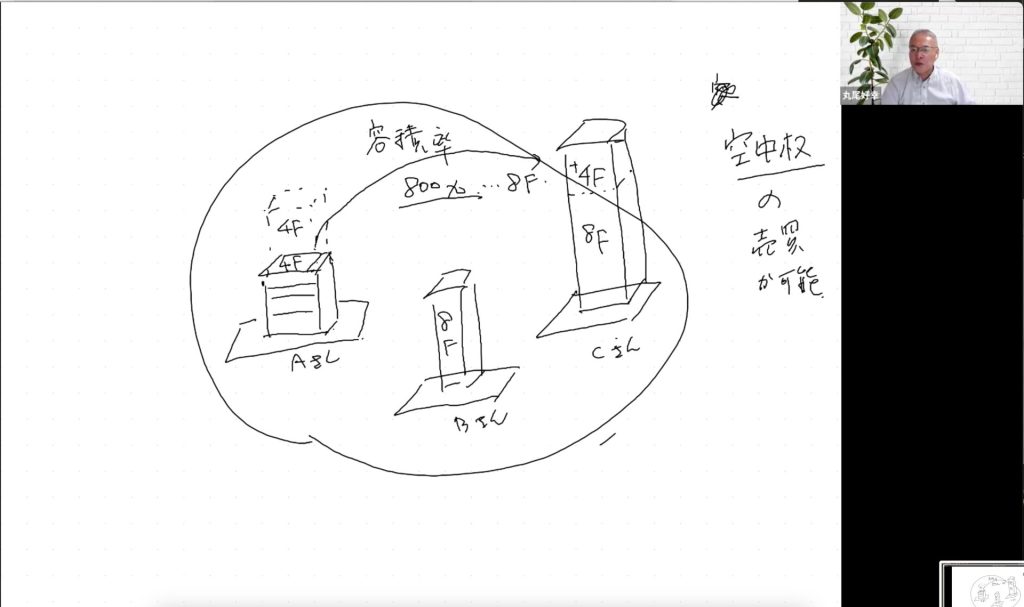 容積率
800% … 8F
4F
4F
Aさん
8F
Bさん
+4F
8F
Cさん
空中权
の
売買
が可能
丸尾好幸